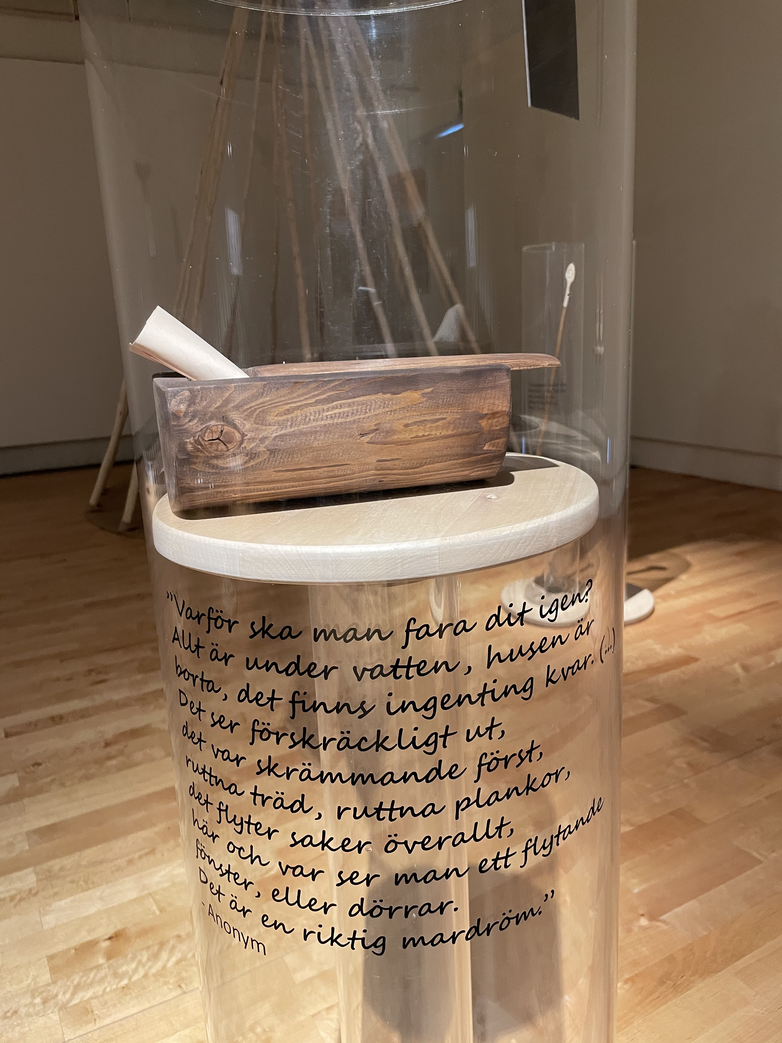 ”Varför ska man fara dit igen?
Allt är under vatten, husen är
borta, det finns ingenting kvar. (...)
Det ser förskräckligt ut,
det var skrämmande först,
ruttna träd, ruttna plankor,
det flyter saker överallt,
här och var ser man ett flytande
fönster, eller dörrar.
Det är en riktig mardröm.”
- Anonym